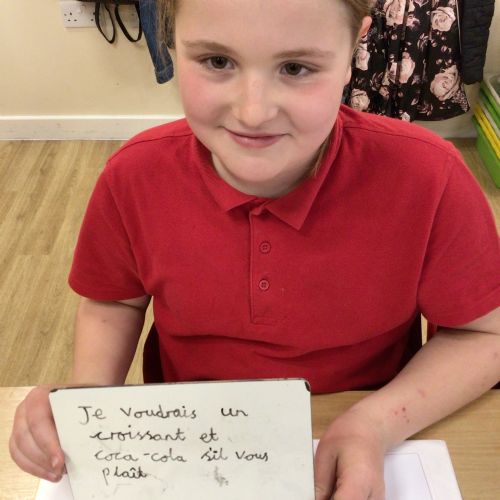 Je voudrais un
croissant et
coca-cola s'il vous
plaît